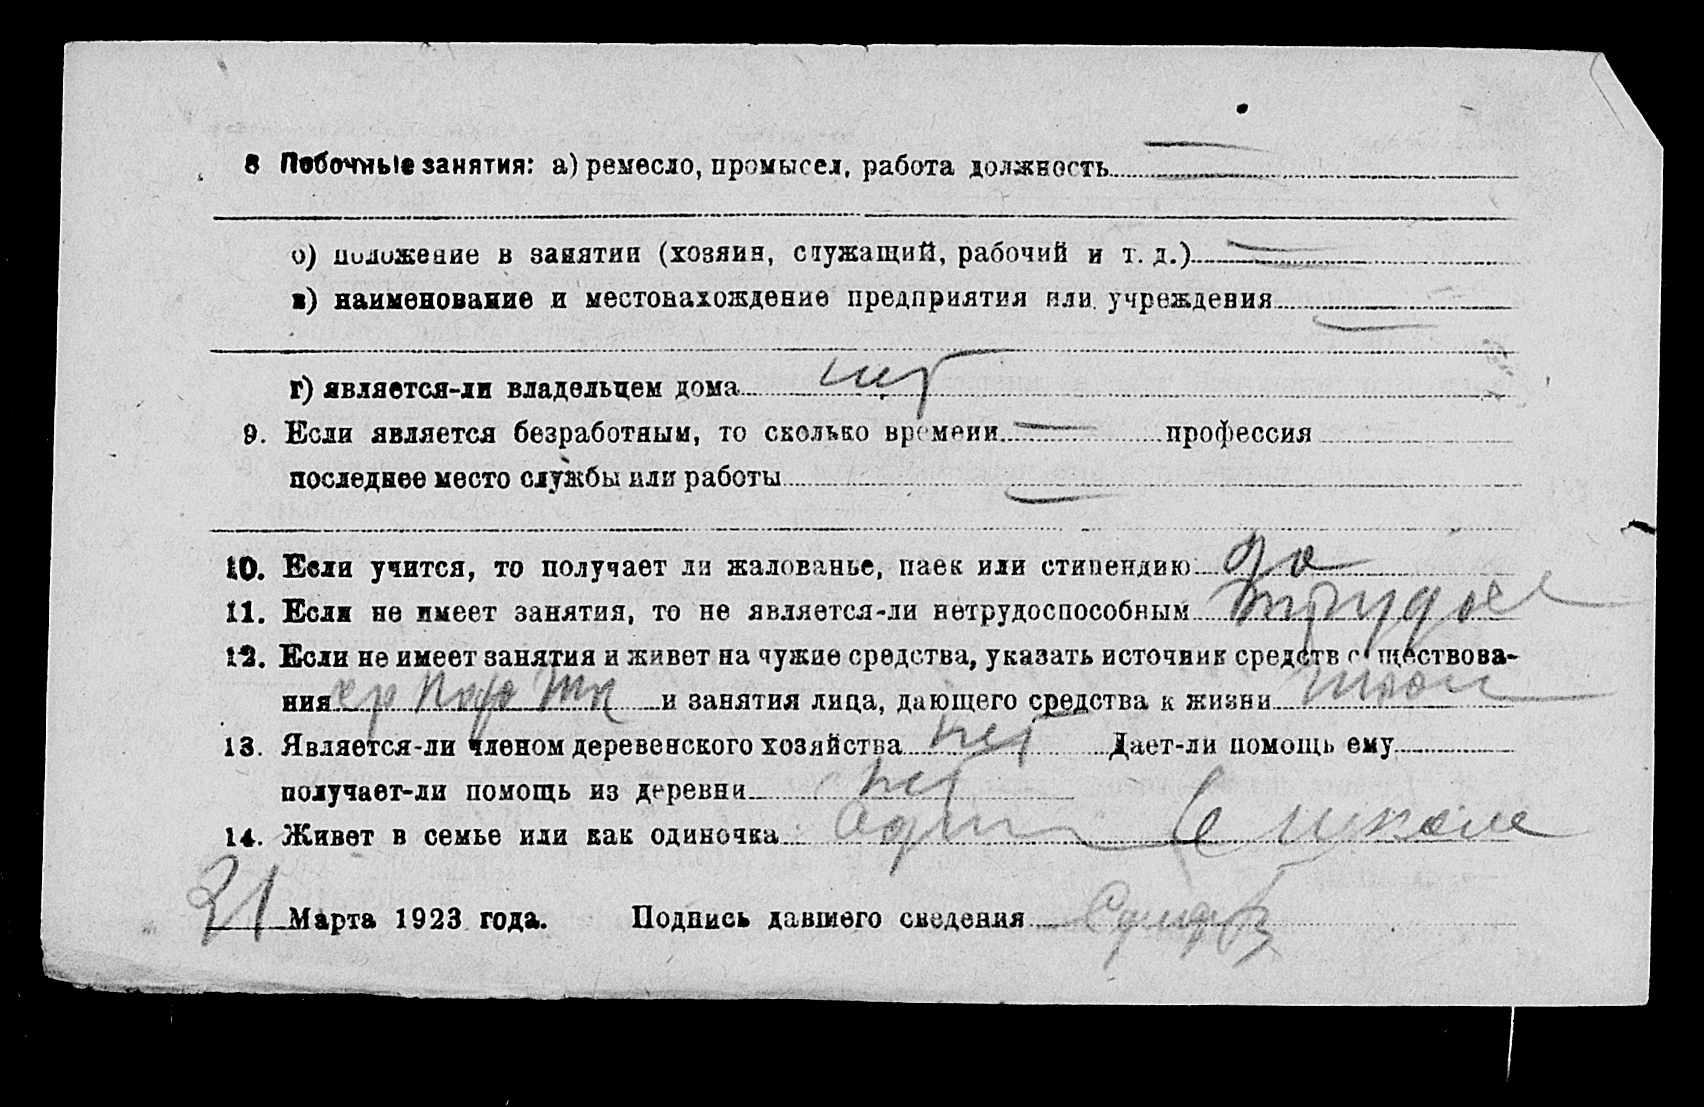 8 Побочные занятия: а) ремесло, промысел, работа должность —
б) положение в занятии (хозяин, служащий, рабочий и т. д.) —
в) наименование и местонахождение предприятия или учреждения —
г) является-ли владельцем дома нет
9. Если является безработным, то сколько времени — профессия
последнее место службы или работы —
10. Если учится, то получает ли жалованье, паек или стипендию да
11. Если не имеет занятия, то не является-ли нетрудоспособным
12. Если не имеет занятия и живет на чужие средства, указать источник средств существова-
ния и занятия лица, дающего средства к жизни
13. Является-ли членом деревенского хозяйства нет Дает-ли помощь ему
получает-ли помощь из деревни нет
14. Живет в семье или как одиночка
31 Марта 1923 года. Подпись давшего сведения